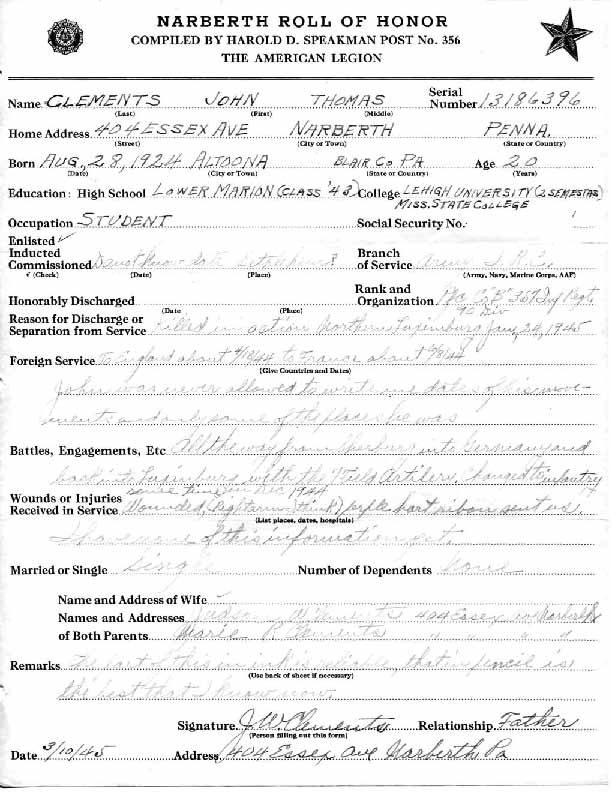 NARBERTH ROLL OF HONOR
COMPILED BY HAROLD D. SPEAKMAN POST No. 356
THE AMERICAN LEGION
Name CLEMENTS JOHN THOMAS Serial Number 13186396
(Last) (First) (Middle)
Home Address 404 ESSEX AVE NARBERTH PENNA.
(Street) (City or Town) (State or Country)
Born AUG, 28, 1924 ALTOONA BLAIR CO. PA Age 20
(Date) (City or Town) (State or Country) (Years)
Education: High School LOWER MARION (CLASS '43) College LEHIGH UNIVERSITY (2 SEMESTAS)
MISS. STATE COLLEGE
Occupation STUDENT Social Security No.
Enlisted ✓
Inducted
Commissioned Do not know date Branch of Service Army
√ (Check) (Date) (Place) (Army, Navy, Marine Corps, AAF)
Honorably Discharged Rank and Organization Pfc Co "B" 357 Inf Regt.
(Date (Place) 90 Div
Reason for Discharge or Separation from Service Killed in action Northern Luxemburg Jan, 24, 1945
Foreign Service To England about 4/10/44 to France about
(Give Countries and Dates)
John was never allowed to write me dates of his move-
ments and only some of the places he was
Battles, Engagements, Etc All the way from Cherburg into Germany and
back into Luxemburg with the Field Artilery, Changed to infantry
some time in Dec 1944
Wounds or Injuries Received in Service Wounded, Right arm (I think) purple hart ribon sent us,
(List places, dates, hospitals)
I have none of this information yet.
Married or Single Single Number of Dependents None
Name and Address of Wife
Names and Addresses of Both Parents Judson W Clements 404 Essex ave Narberth Pa
Marie R Clements " " " "
Remarks The part of this in ink is reliable, that in pencil is
(Use back of sheet if necessary)
the best that I know now.
Signature J. W. Clements Relationship Father
(Person filling out this form)
Date 3/10/45 Address 404 Essex Ave Narberth Pa